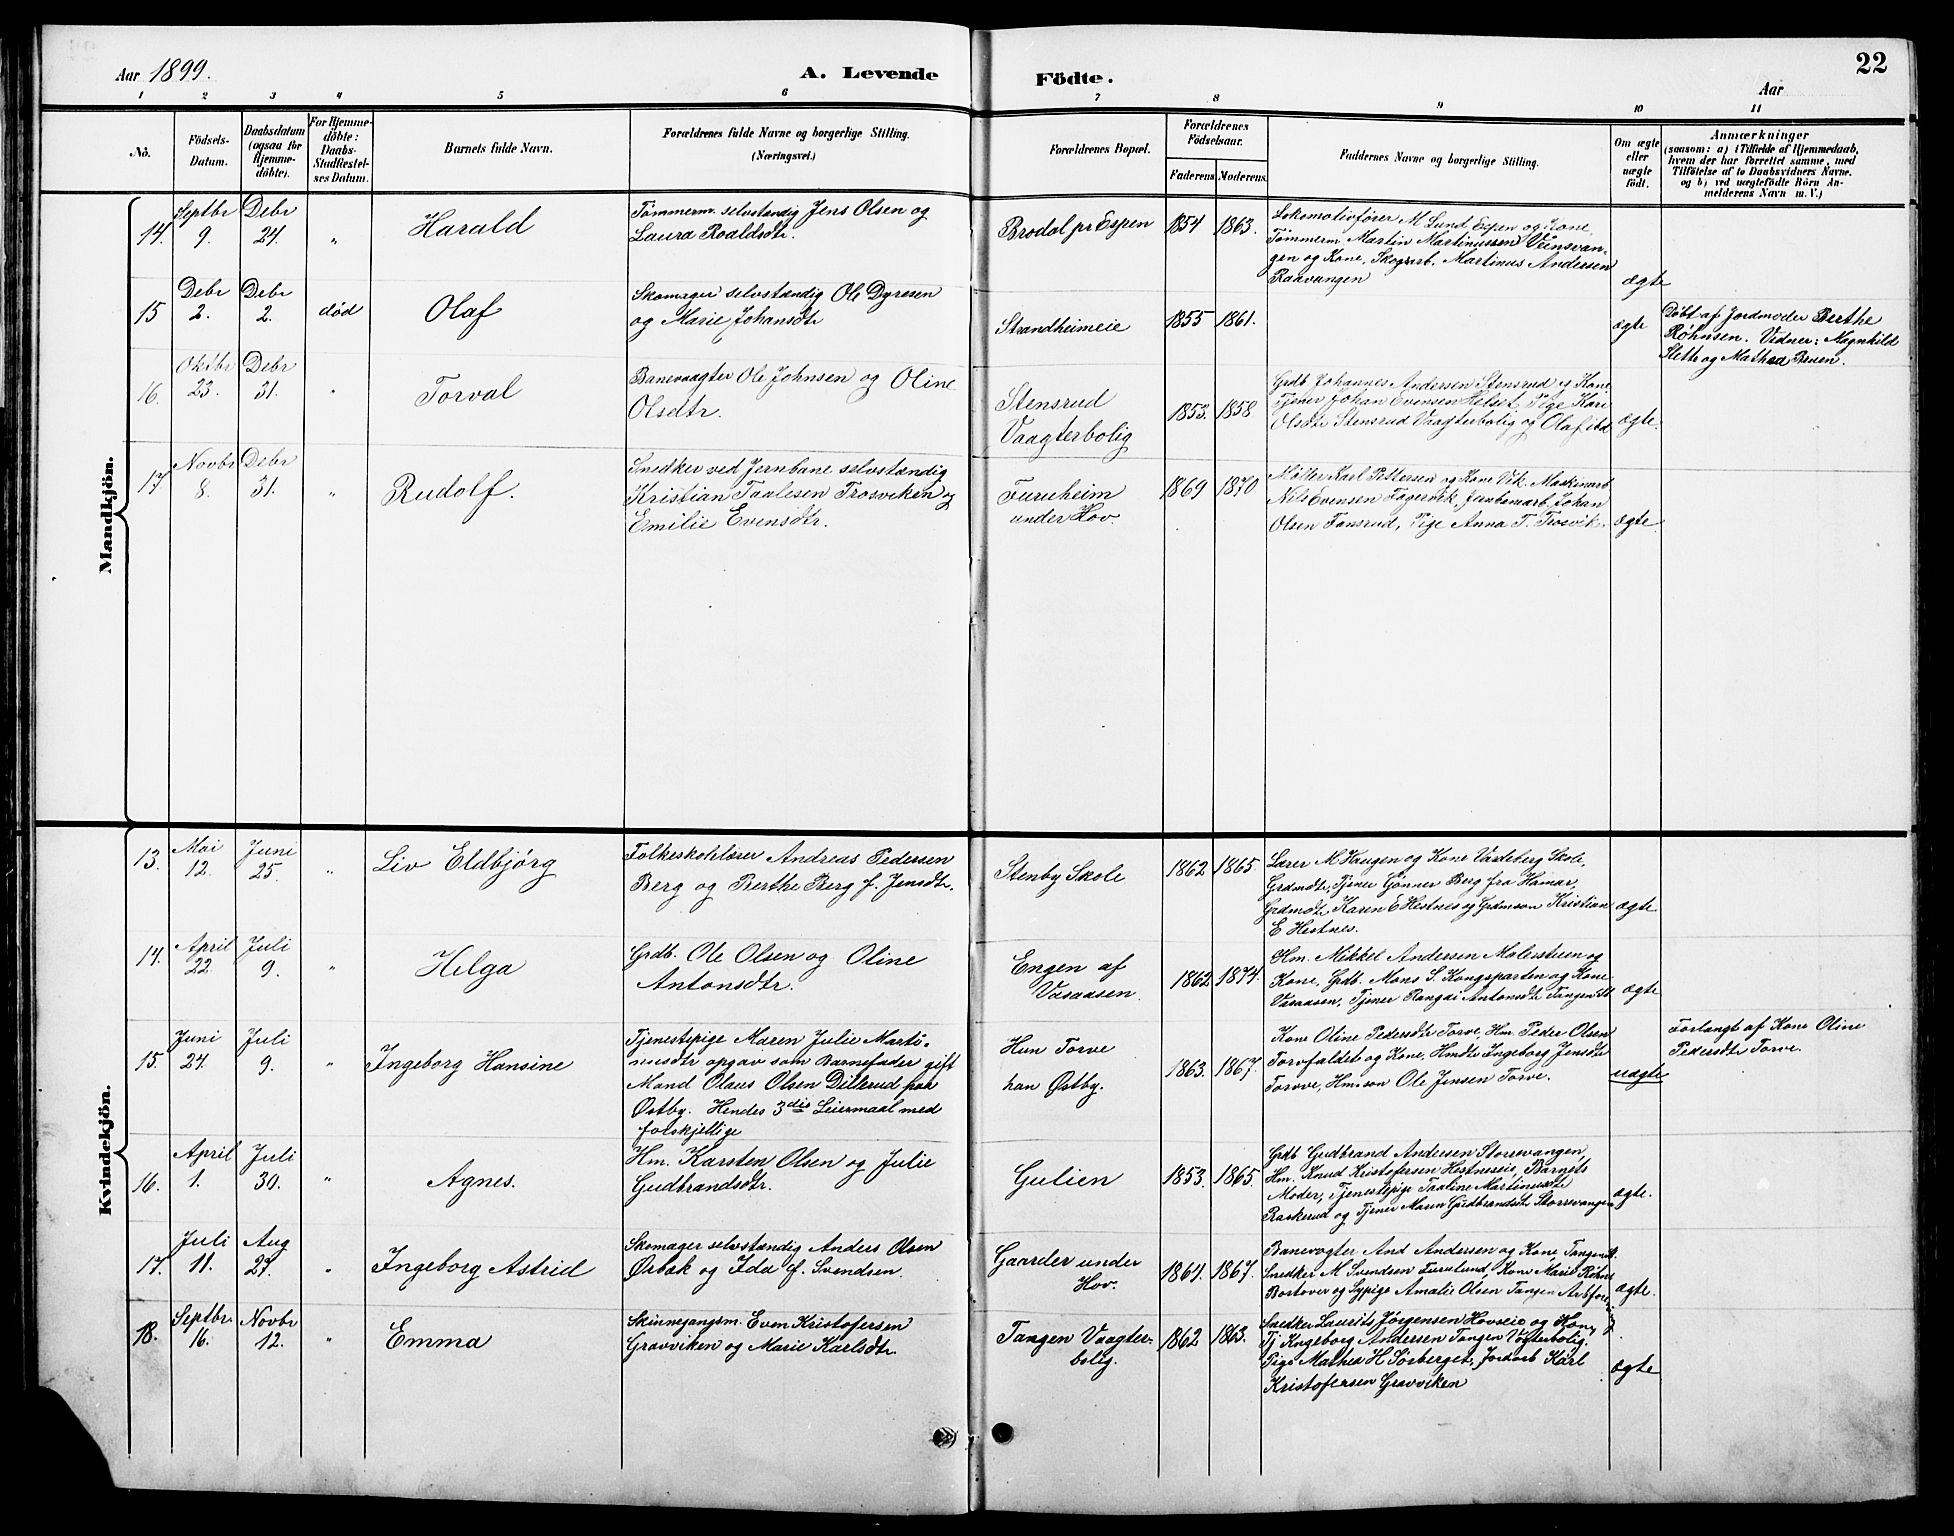 Aar 1899.
A. Levende
Födte.
Aar
22
1 2 3 4 5 6 7 8 9 10 11
No.
Födsels-
Datum.
Daabsdatum
(ogsaa for
Hjemme-
döbte).
For Hjemme-
döbte:
Daabs-
Stadfæstel-
ses Datum.
Barnets fulde Navn.
Forældrenes fulde Navne og borgerlige Stilling.
(Næringsvei.)
Forældrenes Bopæl.
Forældrenes
Födselsaar.
Faderens Moderens.
Faddernes Navne og borgerlige Stilling.
Om ægte
eller
uægte
födt.
Anmærkninger
(saasom: a) i Tilfælde af Hjemmedaab,
hvem der har forrettet samme, med
Tilföielse af to Daabsvidners Navne.
og b) ved uægtefödte Börn An-
melderens Navn m. V.)
Mandkjön.
14. Septbr 9. Debr 24. " Harald
Tømmerm. selvstændig Jens Olsen og
Laura Roaldsdtr.
Brodal pr Espen 1854 1863.
Lokomotivfører M Lund Espen og Kone,
Tømmerm. Martin Martinussen Vensvan-
gen og Kone, Skogsarb. Martinus Andersen
Raavangen
ægte
15 Debr 2. Debr 2. død Olaf
Skomager selvstændig Ole Dyresen
og Marie Johansdtr
Strandheimeie 1855 1861.
ægte
Døbt af Jordmoder Berthe
Røhnsen. Vidner: Magnhild
Slette og Mathea Bruen.
16. Oktbr 23. Debr 31. " Torval
Banevaagter Ole Johnsen og Oline
Olsdtr.
Stensrud
Vaagterbolig
1853. 1858
Grdb Johannes Andersen Stensrud og Kone
Tjener Johan Evensen Helset. Pige Kari
Olsdtr Stensrud Vaagterbolig og Olaf ibd
ægte.
17 Novbr 8. Debr 31. " Rudolf.
Snedker ved Jernbane selvstændig
Kristian Taalesen Trosviken og
Emilie Evensdtr.
Furuheim
under Hov.
1869 1870
Møller Karl Pettersen og Kone Vik. Maskinarb
Nils Evensen Fagervik, Jernbanearb. Johan
Olsen Fonsrud, Pige Anna T. Trosvik.
ægte
Kvindekjön.
13. Mai 12. Juni 25. " Liv Eldbjørg
Folkeskolelærer Andreas Pedersen
Berg og Berthe Berg f. Jensdtr.
Stenby Skole 1862 1865.
Lærer M Haugen og Kone Vardeberg Skole,
Grdmdtr, Tjener Gønner Berg fra Hamar,
Grdmdtr Karen E Hestnes og Grdmson Kristian
E Hestnes.
ægte
14. April 22. Juli 9. " Helga
Grdb. Ole Olsen og Oline
Antonsdtr.
Engen af
Vasaasen.
1862 1874.
Hm. Mikkel Andersen Malerstuen og
Kone, Grdb. Mons S. Kongsparten og Kone
Vasaasen, Tjener Rangdi Antonsdtr Tangen St
ægte
15. Juni 24. Juli 9. " Ingeborg Hansine
Tjenestepige Maren Julie Marti-
nusdtr opgav som Barnefader gift
Mand Olaus Olsen Dillerud paa
Østby. Hendes 3die Leiermaal med
forskjellige
Hun Torve
han Østby.
1863. 1867.
Kone Oline Pedersdtr Torve, Hm. Peder Olsen
Torvfaldet og Kone, Hmdtr Ingeborg Jensdtr
Torvve, Hmson Ole Jensen Torve.
uægte
Forlangt af Kone Oline
Pedersdtr Torve.
16. April 1. Juli 30. " Agnes.
Hm. Karsten Olsen og Julie
Gudbrandsdtr.
Gulien 1853. 1865.
Grdb Gudbrand Andersen Storrevangen,
Hm. Knud Kristofersen Hestneseie, Barnets
Moder, Tjenestepige Taaline Martinusdtr
Raskerud og Tjener Maren Gudbrandsdtr Storrevangen
ægte.
17. Juli 11. Aug 27. " Ingeborg Astrid
Skomager selvstændig Anders Olsen
Ørbæk og Ida f. Svendsen.
Gaarder under
Hov.
1864. 1867.
Banevogter And Andersen og Kone Tangen St.
Snedker M Svendsen Furulund, Kone Marie Røhne
Bortover og Sypige Amalie Olsen Tangen
ægte.
18. Septbr 16. Novbr 12. " Emma
Skinnegangsm. Even Kristofersen
Gravviken og Marie Karlsdtr.
Tangen Vaagter-
bolig.
1862 1863.
Snedker Laurits Jørgensen Hovseie og Kone,
Tj Ingeborg Andersen Tangen Vogterbolig.
Pige Mathea H Sørberget, Jordarb Karl
Kristofersen Gravviken
ægte